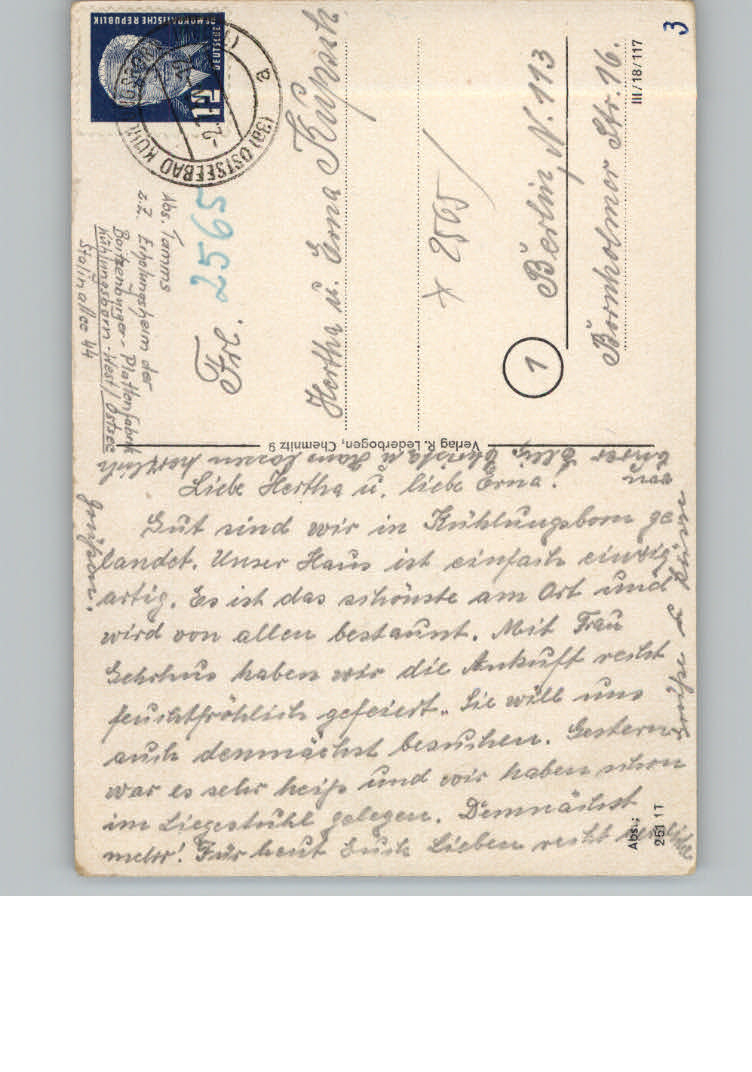 DEUTSCHE
DEMOKRATISCHE REPUBLIK
12
(3a) OSTSEEBAD KÜHLUNGSBORN
a
Abs. Tamms
z.Z. Erholungsheim der
Boitzenburger-Plattenfabrik
Kühlungsborn-West/Ostsee
Stalinallee 44
2565
Frl.
Hertha u. Erna Kupsch
* 2565/
1
Berlin, N. 113
Bornholmer Str. 16.
III/18/117
3
Verlag R. Lederbogen, Chemnitz 9
Liebe Hertha u. liebe Erna!
Gut sind wir in Kühlungsborn ge
landet. Unser Haus ist einfach einzig
artig. Es ist das schönste am Ort und
wird von allen bestaunt. Mit Frau
haben wir die Ankuft recht
feuchtfröhlich gefeiert. Sie will uns
auch demnächst besuchen. Gestern
war es sehr heiß und wir haben schon
im Liegestuhl gelegen. Demnächst
mehr! Für heut Euch Lieben recht herzliche
Grüße u. Küsse
Eure
u. Hans lassen herzlich
grüßen.
Abs.:
251 1T